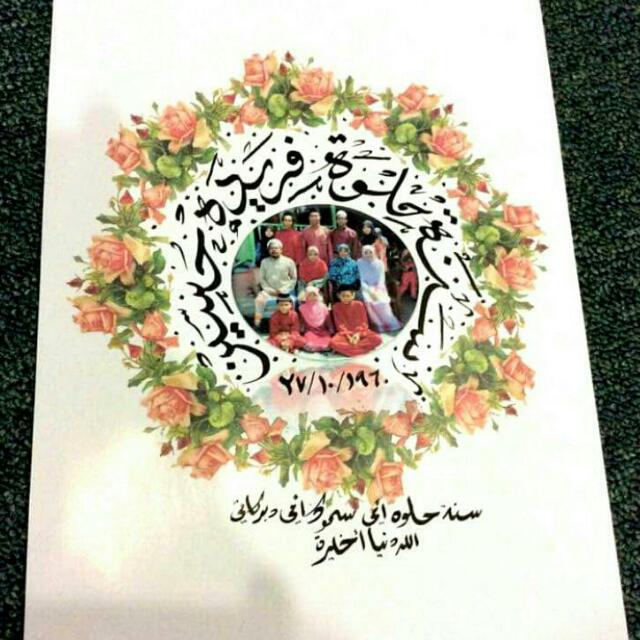 سنة حلوة فريدة حسين
٢٧/١٠/١٩٦٠
سنة حلوه امي دبركاتي
الله دنيا اخيرة